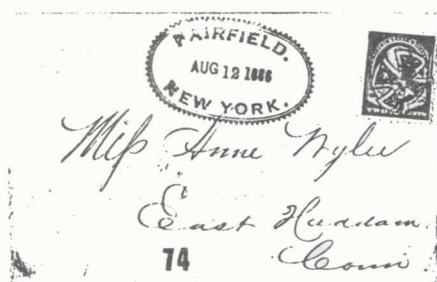 FAIRFIELD.
AUG 12 1886
NEW YORK.
Miss Anne Wylie
East Haddam.
Conn.
74